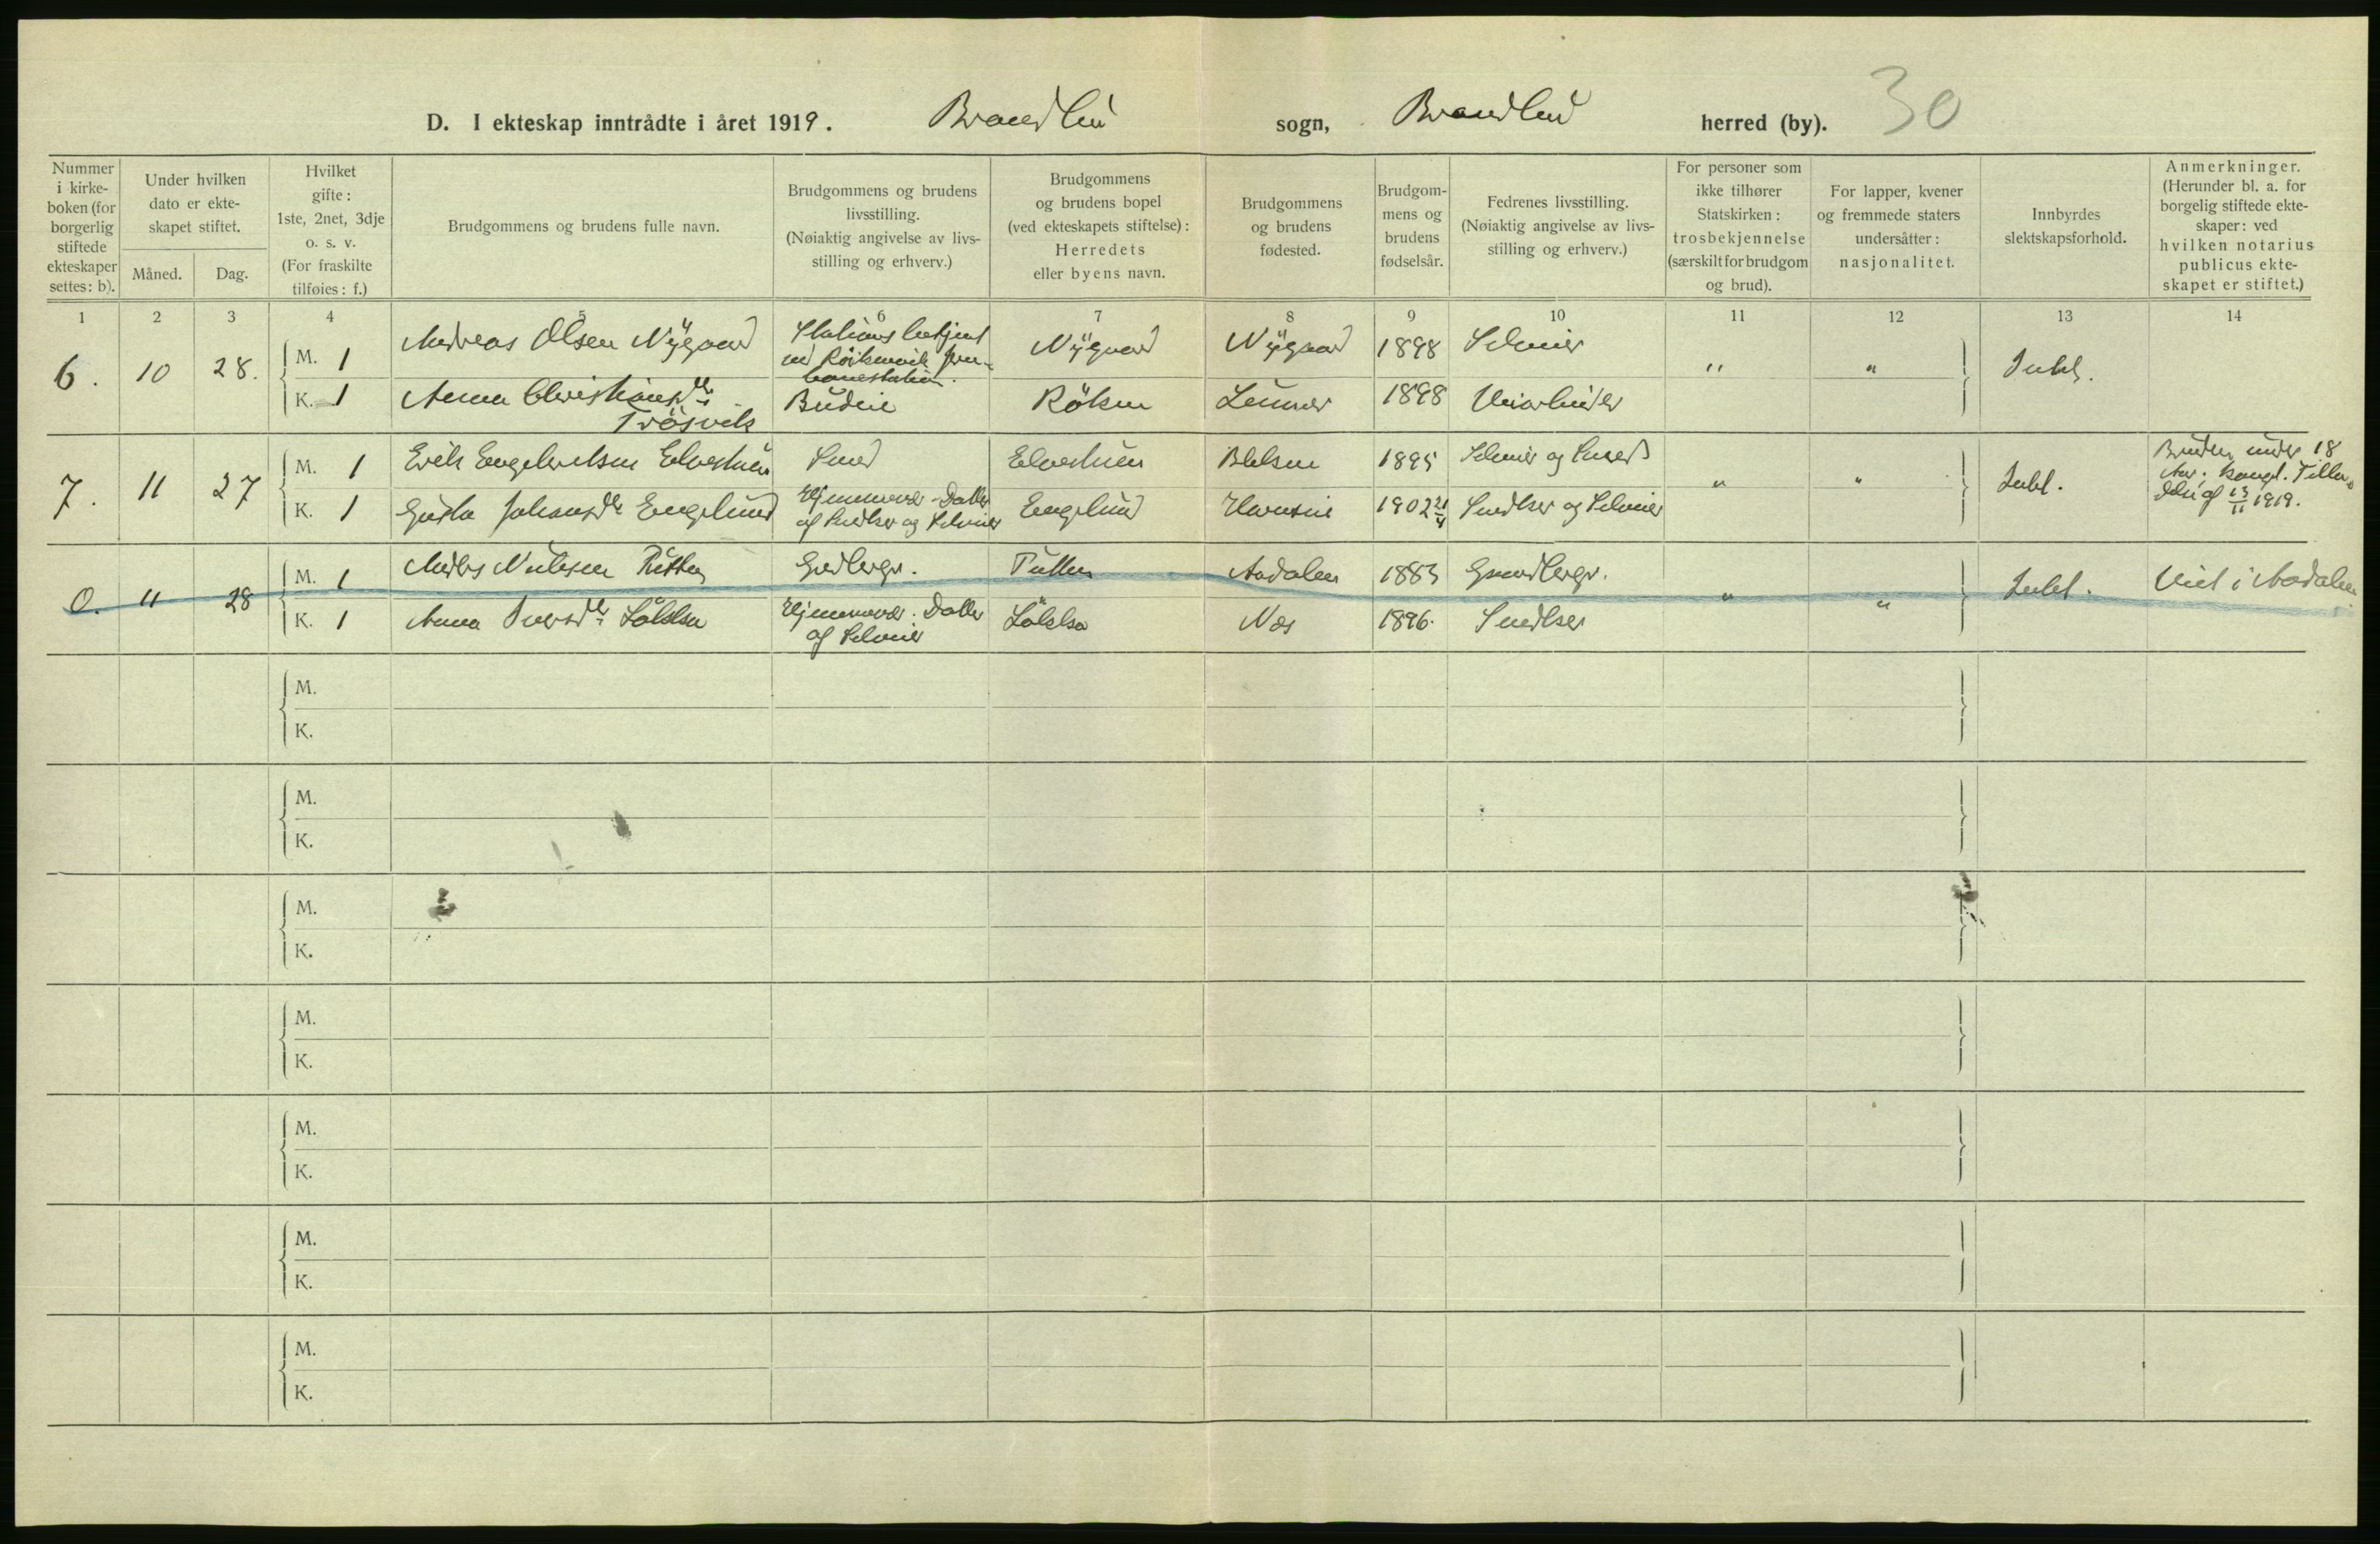 D. I ekteskap inntrådte i året 1919. Brandbu sogn, Brandbu herred (by). 30
Nummer i kirke- boken (for borgerlig stiftede ekteskaper settes: b).
Under hvilken dato er ekte- skapet stiftet.
Måned. Dag.
Hvilket gifte: 1ste, 2net, 3dje o. s. v. (For fraskilte tilføies: f.)
Brudgommens og brudens fulle navn.
Brudgommens og brudens livsstilling. (Nøiaktig angivelse av livs- stilling og erhverv.)
Brudgommens og brudens bopel (ved ekteskapets stiftelse): Herredets eller byens navn.
Brudgommens og brudens fødested.
Brudgom- mens og brudens fødselsår.
Fedrenes livsstilling. (Nøiaktig angivelse av livs- stilling og erhverv.)
For personer som ikke tilhører Statskirken: trosbekjennelse (særskilt for brudgom og brud).
For lapper, kvener og fremmede staters undersåtter: nasjonalitet.
Innbyrdes slektskapsforhold.
Anmerkninger. (Herunder bl. a. for borgelig stiftede ekte- skaper: ved hvilken notarius publicus ekte- skapet er stiftet.)
1 2 3 4 5 6 7 8 9 10 11 12 13 14
6. 10 28. M. 1 Andreas Olsen Nÿgaard Stationsbetjent ved Röikenvik Jern- banestation. Nÿgaard Nÿgaard 1898 Selveier " " Intet.
K. 1 Anna Christiansdtr Trösvik Budeie Röken Lunner 1898
7. 11 27 M. 1 Erik Engebretsen Elvestuen Smed Elvestuen 1895 Selveier og Smed " " Intet. Bruden under 18 Aar. kongl. Tilla- delse af 13/11 1919.
K. 1 Gusta Johansdtr Englund Hjemmevær. Datter af Snedker og Selveier Englund 1902 21/4 Snedker og Selveier
0. 11 28 M. 1 Anders Nielsen Putten Gardbrgr. Putten Aadalen 1883 Gaardbrgr. " " Intet. Viet i Aadalen.
K. 1 Anna Iversdtr Hjemmevær. Datter af Selveier Næs 1896. Snedker
M.
K.
M.
K.
M.
K.
M.
K.
M.
K.
M.
K.
M.
K.